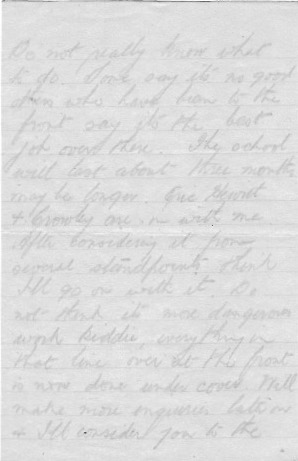 Do not really know what
to do. Some say it's no good
others who have been to the
front say it's the best
job over there. The school
will last about three months
may be longer. Eric
& Crowley are in with me
After considering it from
several standpoints think
I'll go on with it. Do
not think it's more dangerous
work Kiddie, everything in
that line over at the front
is now done under cover. Will
make more enquiries later on
& I'll consider you to the